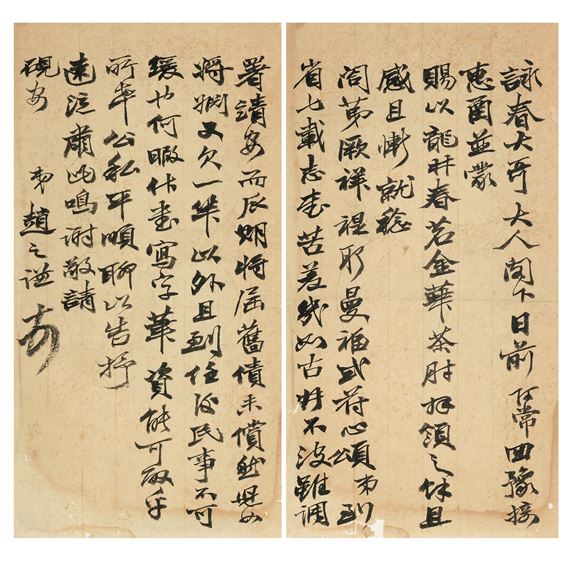 詠春大哥大人閣下日前何常回豫接
惠函並蒙
賜以龍井春茗金華茶肘拜領之餘且
感且慚就稔
閤第厥祥禔躬曼福式符心頌弟到
省七載志在苦差幾如古井不波雖調
署靖安而瓜期將屆舊債未償
將捆又欠一年以外且到任後民事不可
緩也何暇作畫寫字華資能可取乎
所幸公私平順聊以告抒
遠注肅此鳴謝敬請
硯安 弟趙之謙頓首